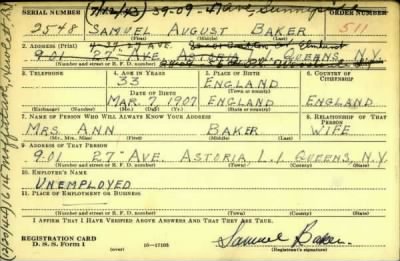 SERIAL NUMBER (7/12/43) 39-09- Ave, Sunnyside ORDER NUMBER
2548 SAMUEL AUGUST BAKER 511
(First) (Middle) (Last)
2. ADDRESS (Print)
9-01 27th AVE. ASTORIA QUEENS N.Y.
(Number and street or R. F. D. number) (Town) (County) (State)
3. TELEPHONE 4. AGE IN YEARS 5. PLACE OF BIRTH 6. COUNTRY OF CITIZENSHIP
33 ENGLAND
DATE OF BIRTH
MAR. 7 1907 ENGLAND ENGLAND
(Exchange) (Number) (Mo.) (Day) (Yr.) (State or country)
7. NAME OF PERSON WHO WILL ALWAYS KNOW YOUR ADDRESS 8. RELATIONSHIP OF THAT PERSON
MRS. ANN BAKER WIFE
(Mr., Mrs., Miss) (First) (Middle) (Last)
9. ADDRESS OF THAT PERSON
9-01 27th AVE. ASTORIA L.I. QUEENS, N.Y.
(Number and street or R. F. D. number) (Town) (County) (State)
10. EMPLOYER'S NAME
UNEMPLOYED
11. PLACE OF EMPLOYMENT OR BUSINESS
(Number and street or R. F. D. number) (Town) (County) (State)
I AFFIRM THAT I HAVE VERIFIED ABOVE ANSWERS AND THAT THEY ARE TRUE.
REGISTRATION CARD
D. S. S. Form 1 (over) 16-17105 Samuel Baker.
(Registrant's signature)